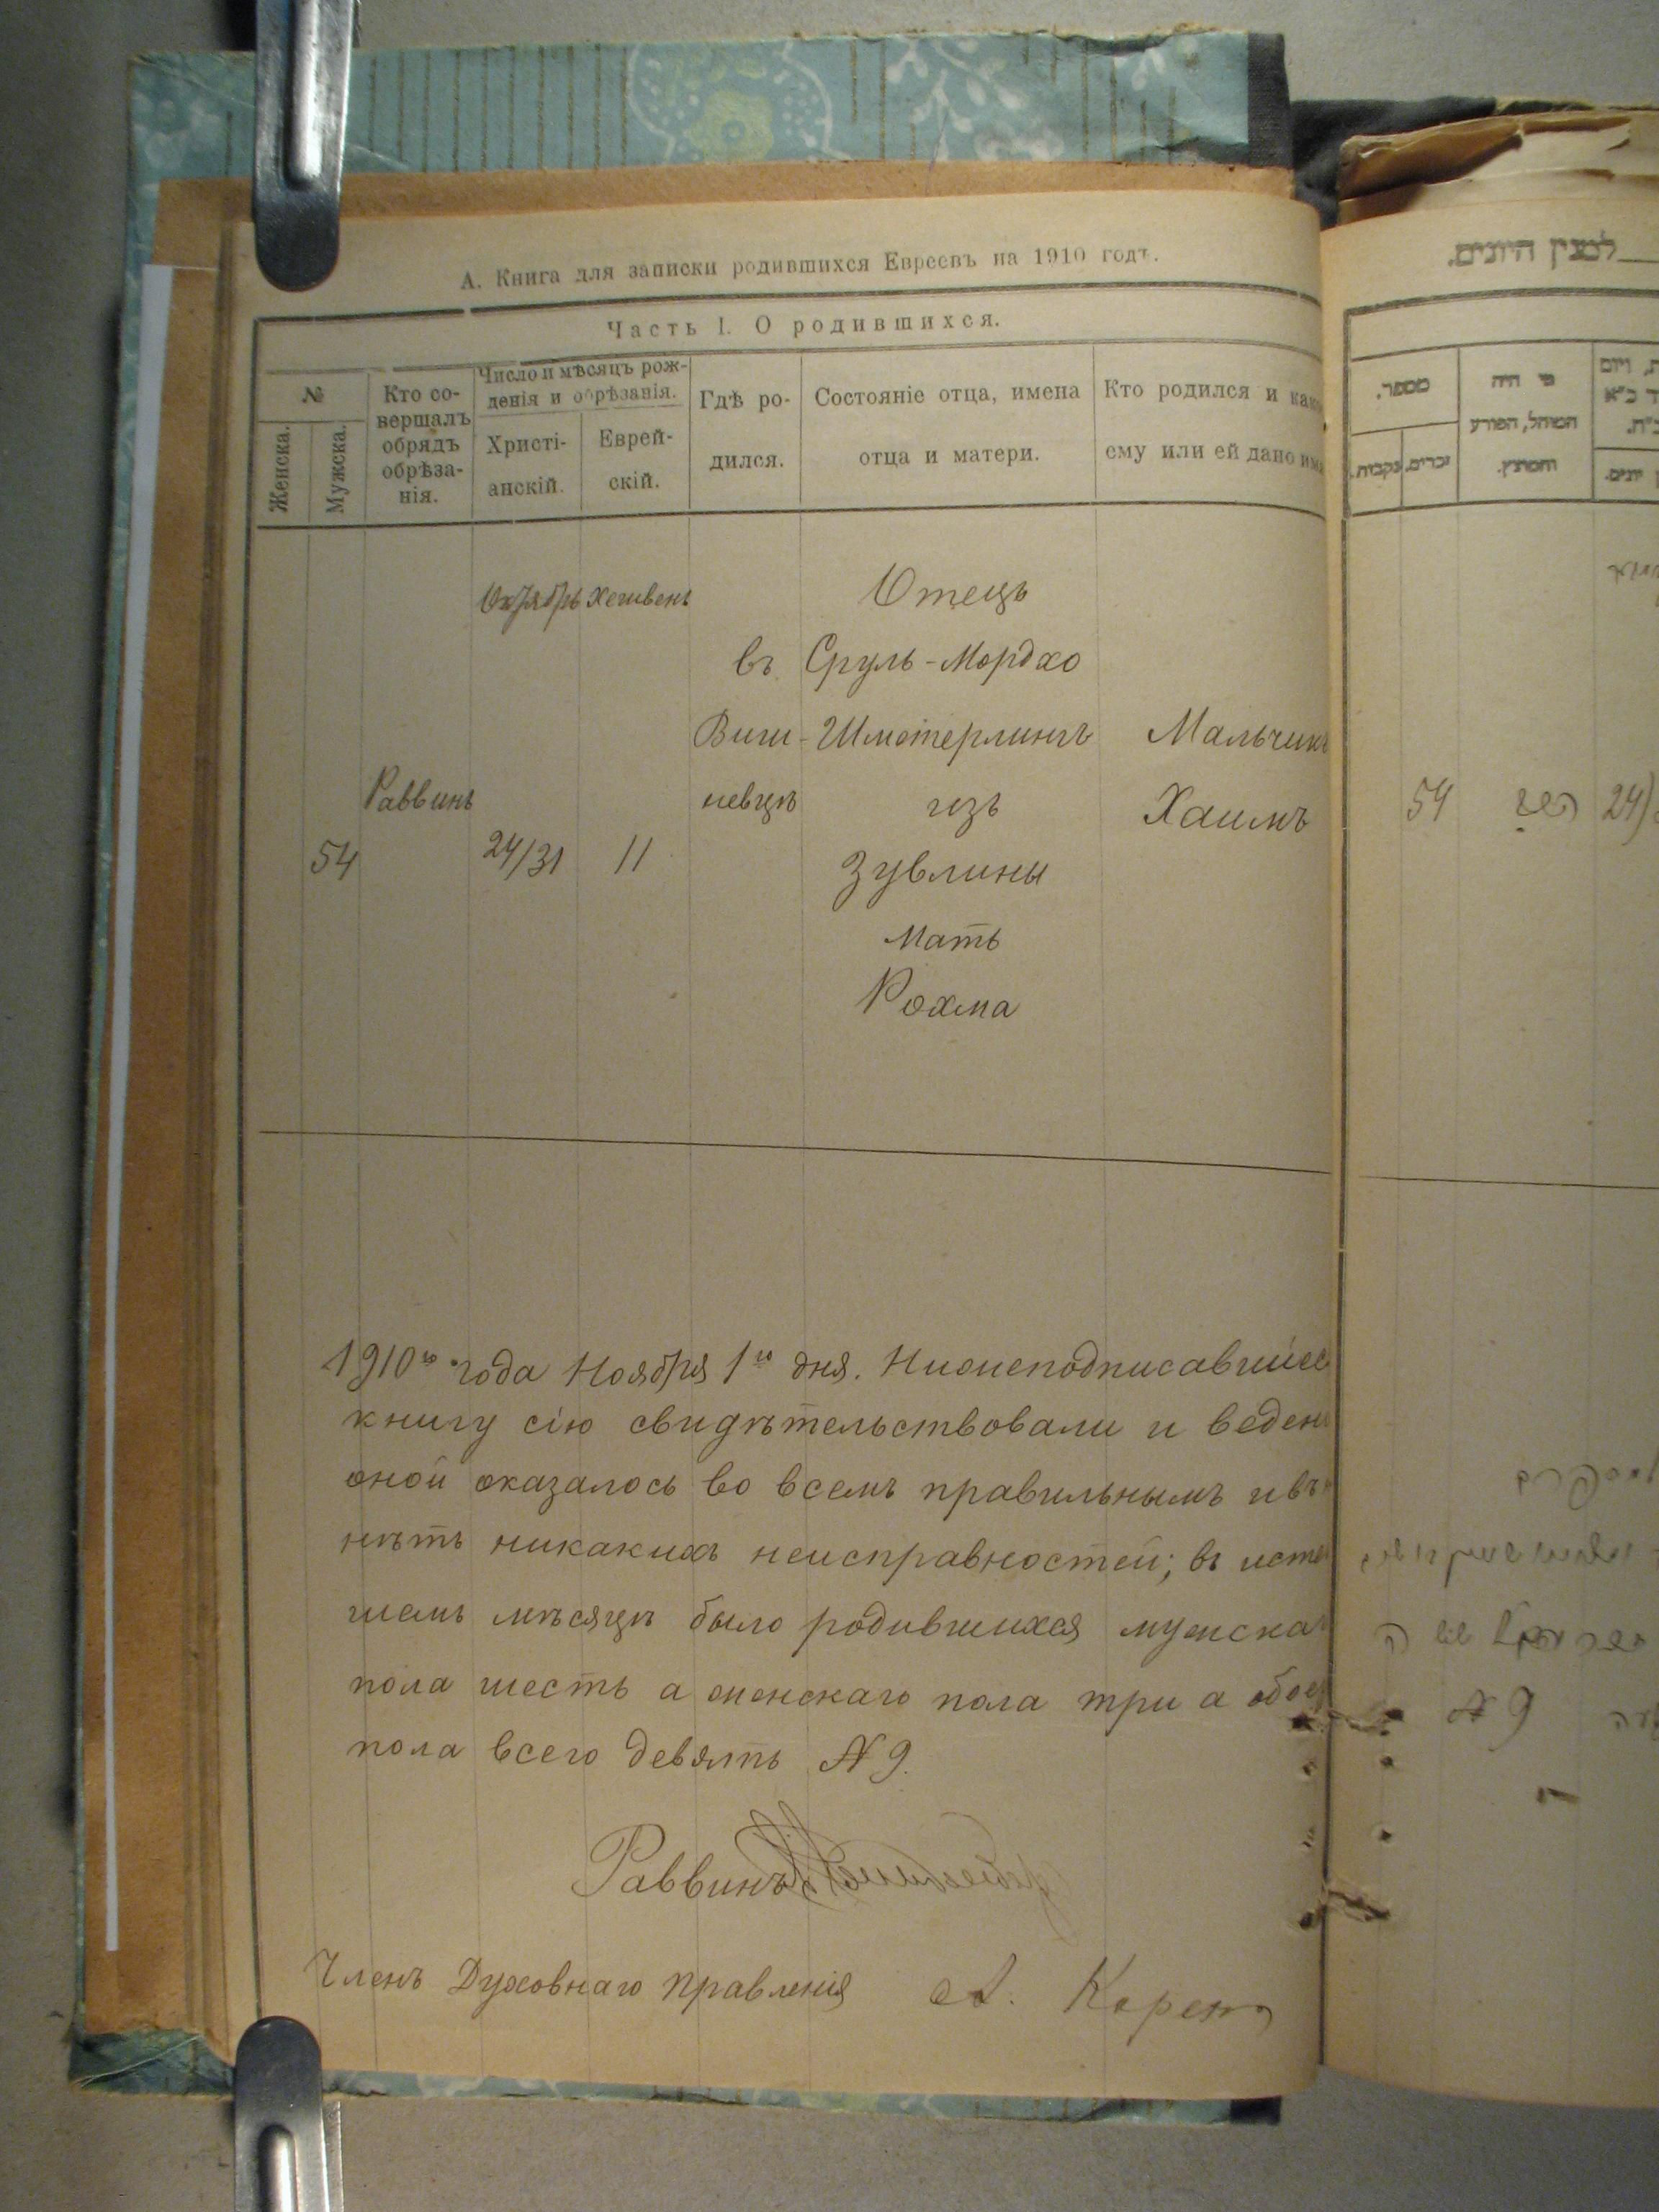 А. Книга для записки родившихся Евреевъ на 1910 годъ.
Часть I. О родившихся.
№
Женска.
Мужска.
Кто со-
вершалъ
обрядъ
обрѣза-
нія.
Число и мѣсяцъ рож-
денія и обрѣзанія.
Христі-
анскій.
Еврей-
скій.
Гдѣ ро-
дился.
Состояніе отца, имена
отца и матери.
Кто родился и како
ему или ей дано им
Октябрь Хешвенъ
Отецъ
въ Сруль-Мордхо
Виш- Шмотерлингъ Мальчикъ
Раввинъ невцѣ изъ Хаимъ
54 24/31 11 Зувлины
Мать
Рохма
1910го года Ноября 1го дня. Нижеподписавшіес
книгу сію свидѣтельствовали и веден
оной оказалось во всемъ правильнымъ и въ
нѣтъ никакихъ неисправностей; въ исте
шемъ мѣсяцѣ было родившихся мужска
пола шесть а женскаго пола три а обое
пола всего девять № 9.
Раввинъ
Членъ Духовнаго Правленія А.
למנין היונים.
מספר.
זכרים.
נקבות.
מי היה
המוהל, הפורע
והמוצץ.
54 24)
№ 9